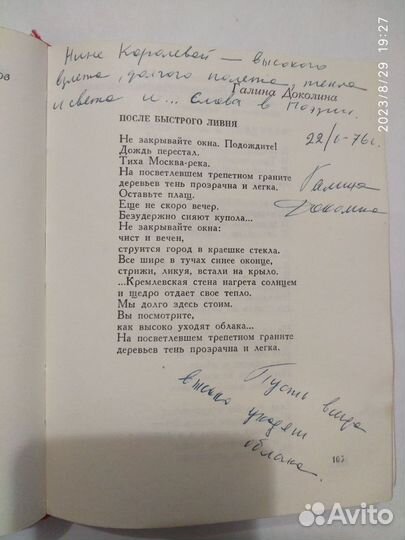 Нине Королевой — высокого
взлета, долгого полета, тепла
и света и... Слова в Поэзии.
Галина Доколина
22/I-76 г.
Галина
Доколина
ПОСЛЕ БЫСТРОГО ЛИВНЯ
Не закрывайте окна. Подождите!
Дождь перестал.
Тиха Москва-река.
На посветлевшем трепетном граните
деревьев тень прозрачна и легка.
Оставьте плащ.
Еще не скоро вечер.
Безудержно сияют купола...
Не закрывайте окна:
чист и вечен,
струится город в краешке стекла.
Все шире в тучах синее оконце,
стрижи, ликуя, встали на крыло.
...Кремлевская стена нагрета солнцем
и щедро отдает свое тепло.
Мы долго здесь стоим.
Вы посмотрите,
как высоко уходят облака...
На посветлевшем трепетном граните
деревьев тень прозрачна и легка.
Пусть всегда
уходят
облака.
2023/8/29 19:27
Avito